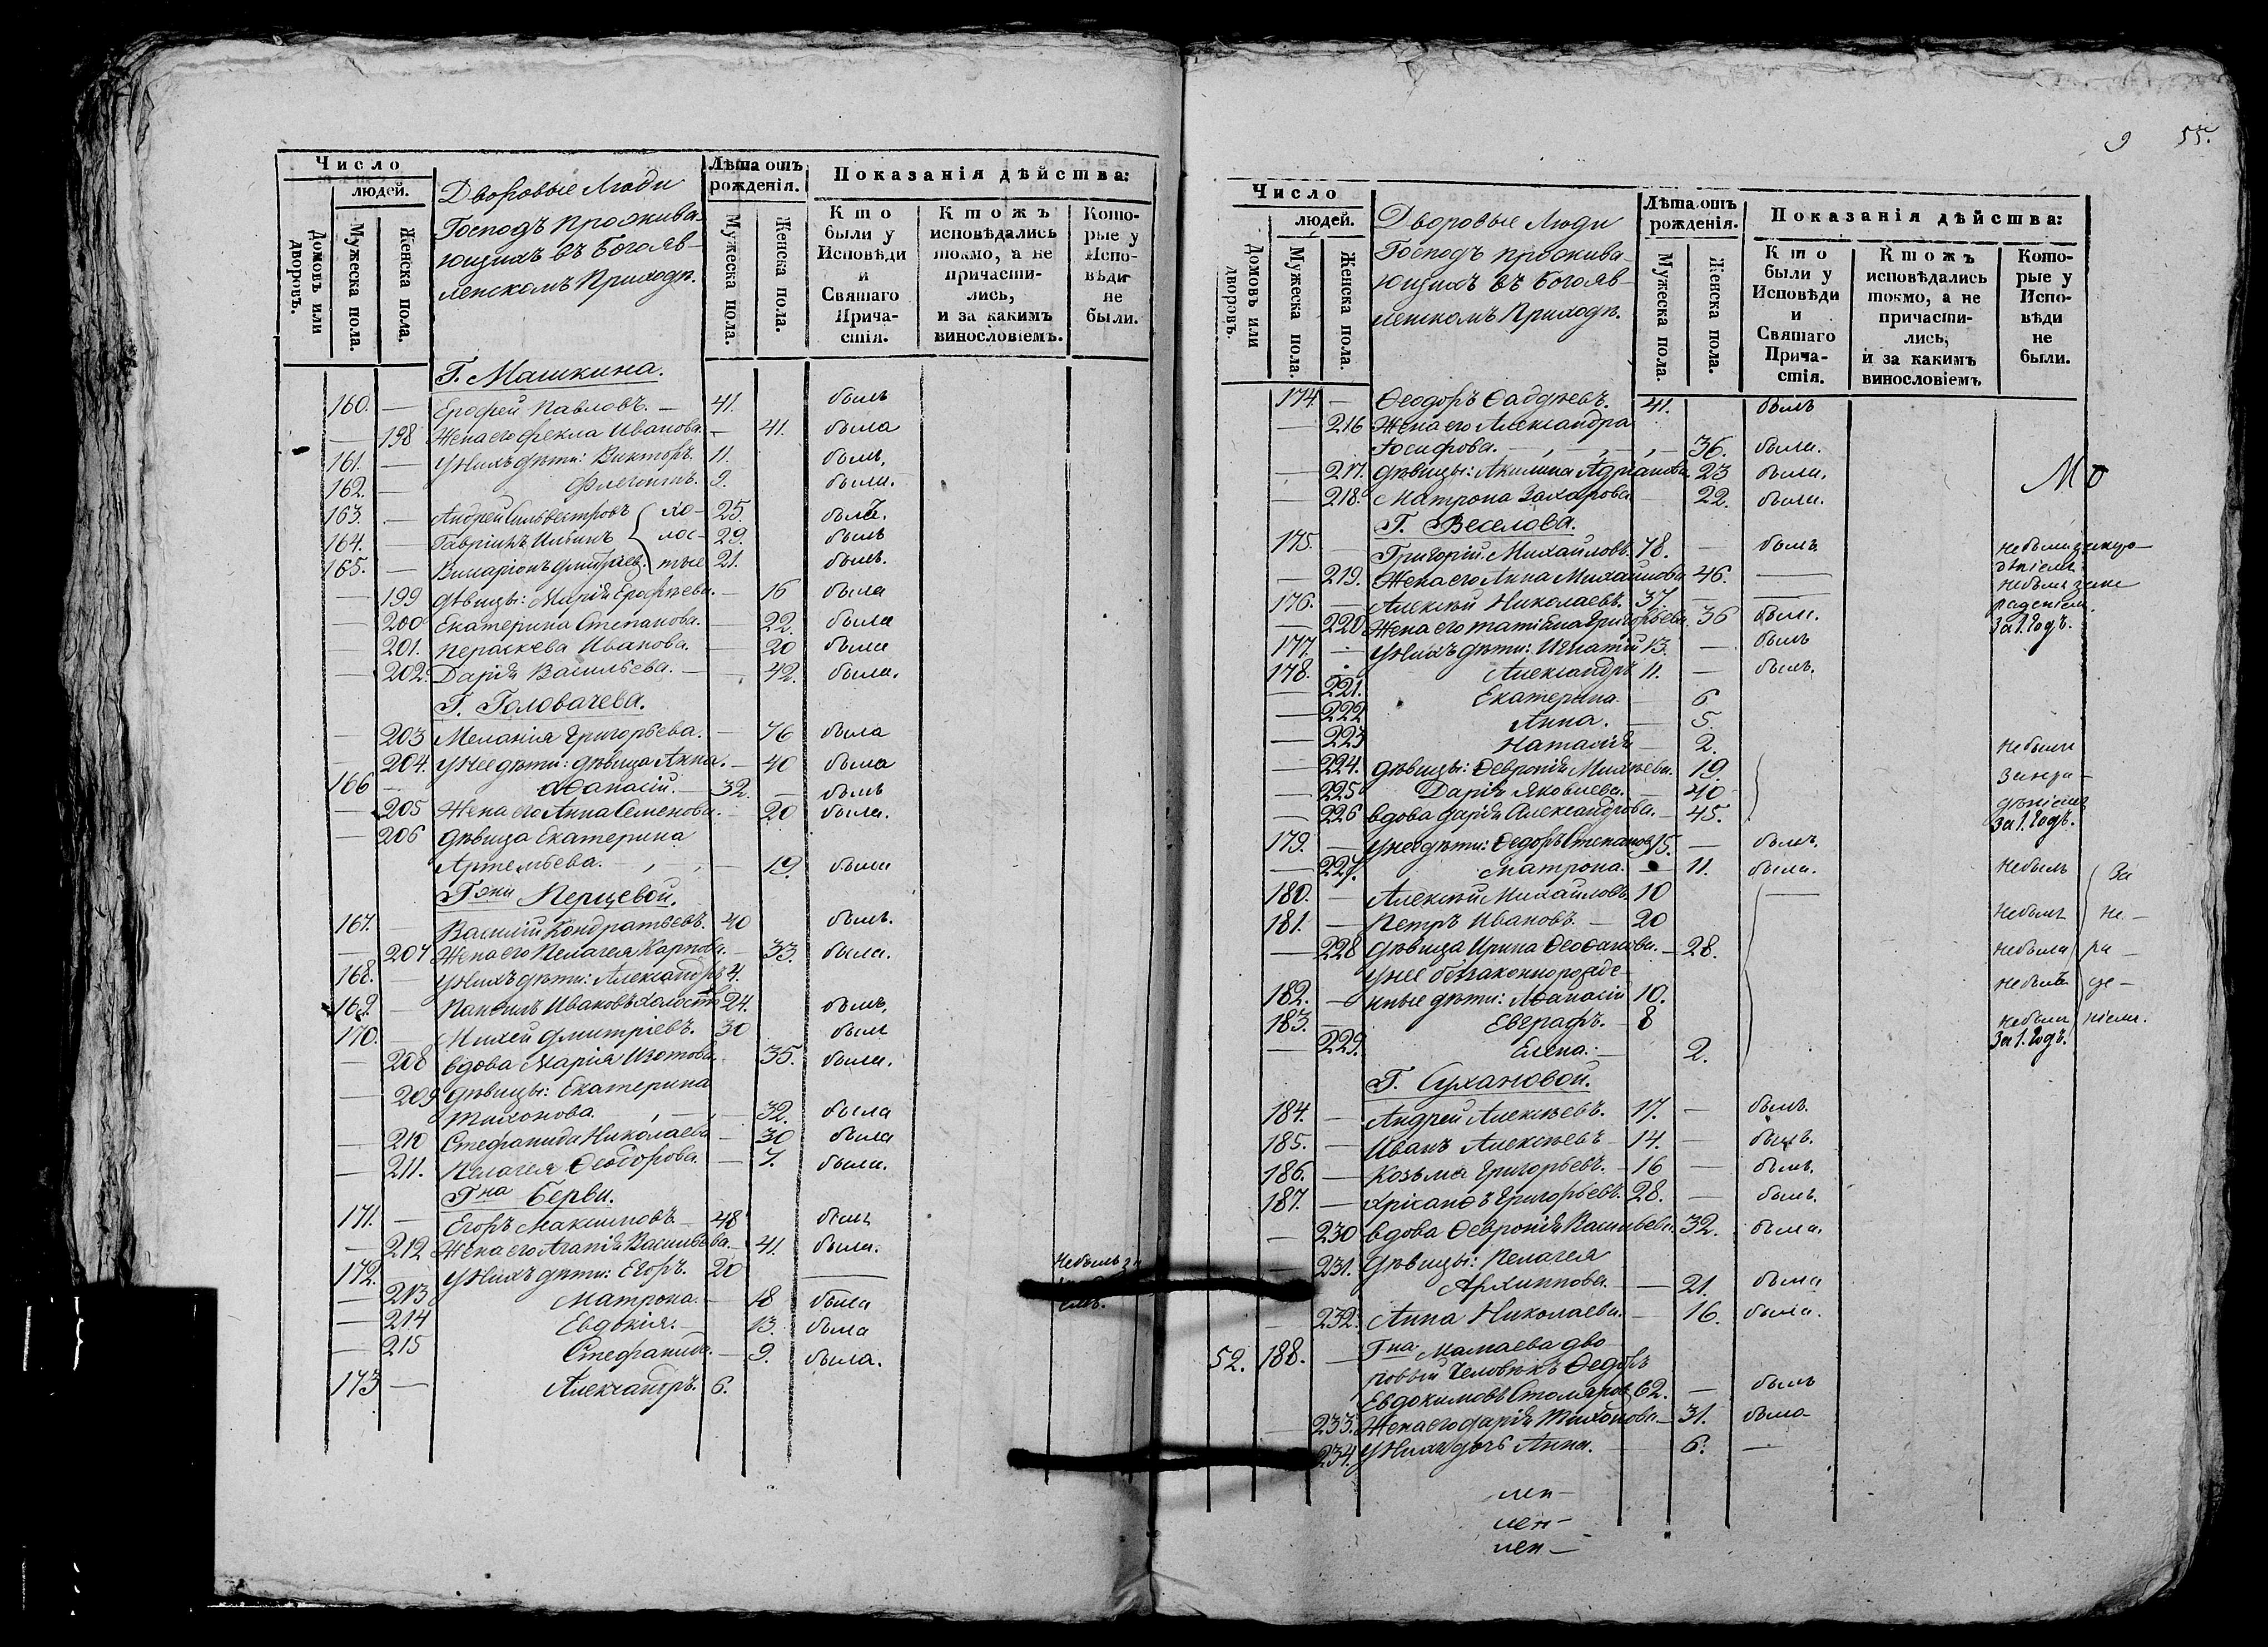 Число
людей.
Домовъ или дворовъ.
Мужеска пола.
Женска пола.
Дворовые Люди
Господъ Прожива-
ющихъ въ Богояв-
ленскомъ Приходѣ.
Лѣта отъ рожденія.
Мужеска пола.
Женска пола.
Показанія дѣйства:
Кто были у Исповѣди и Святаго Прича-стія.
Ктожъ исповѣдались токмо, а не причасти-лись, и за какимъ винословіемъ.
Кото-рые у Испо-вѣди не были.
Г. Машкина.
160. — Ерофей Павловъ. — 41. былъ
— 198 Жена его Фекла Иванова. — 41. была
161. — У Нихъ дѣти: Викторъ. 11. былъ,
162. — 9. былъ.
163. — Андрей Сильвестровъ хо- 25. былъ.
164. — Гавріилъ Ильинъ лос- 29. былъ
165. — Иларіонъ Дмитріев. тые 21. былъ.
— 199 Дѣвицы: Марія Ерофѣева. — 16 была
— 200 Екатерина Степанова. — 22. была
— 201. Параскева Иванова. — 20 была
— 202. Дарія Васильева. — 42. была.
Г. Головачева.
— 203 Меланія Григорьева. — 76 была
— 204. У Нее дѣти: дѣвица Анна. — 40 была
166 — Аѳанасій. — 32. — былъ
— 205 Жена его Анна Семенова. — 20 была.
— 206 Дѣвица Екатерина
Артемьева. — 19. была
Гжи Перцевой.
167. — Василій Кондратьевъ. 40 былъ.
— 207 Жена его Пелагея Карпова. — 33. была.
168. — У Нихъ дѣти: Александръ 4.
169. — Иванов холостъ 24. былъ,
170. — Михей Дмитріевъ. 30 былъ
— 208 Вдова Марія Изотова. 35. была.
— 209 Дѣвицы: Екатерина
Тихонова. — 32. была
— 210 Стефанида Николаева — 30 была
— 211. Пелагея Ѳеодорова. — 7. была.
Гна Берви.
171. — Егоръ Максимовъ. — 48 былъ
— 212 Жена его Агапія Васильева. — 41. была.
172. — У Нихъ дѣти: Егоръ. 20 — Небылъ за
— 213 Матрона. — 18 была
— 214 Евдокія. — 13. была
— 215 Стефанида. — 9. была.
173 — Александръ. 6.
9 55.
Число
людей.
Домовъ или дворовъ.
Мужеска пола.
Женска пола.
Дворовые Люди
Господъ прожива-
ющихъ въ Богояв-
ленскомъ Приходѣ.
Лѣта отъ рожденія.
Мужеска пола.
Женска пола.
Показанія дѣйства:
Кто были у Исповѣди и Святаго Прича-стія.
Ктожъ исповѣдались токмо, а не причасти-лись, и за какимъ винословіемъ
Кото-рые у Испо-вѣди не были.
174 — Ѳеодоръ Ѳаддѣевъ. 41. былъ
— 216 Жена его Александра
Іосифова. — 36. была.
— 217. Дѣвицы: Акилина Адрианова 23 была.
— 218. Матрона Захарова — 22. была.
Г. Веселова.
175. — Григорій Михайловъ. 78. — былъ
— 219. Жена его Анна Михайлова 46. —
176. — Алексѣй Николаевъ. 37. —
раденіем.
— 220 Жена его Татіана Григорьева. 36 была. за 1. годъ.
177. — У Нихъ дѣти: Игнатій 13. — былъ
178. — Александръ 11. — былъ.
— 221. Екатерина. — 6
— 222 Анна. — 5.
— 223 Наталія — 2.
— 224. Дѣвицы: Ѳевронія Михѣева. 19. Небыли
— 225 Дарія Яковлева. — 40 за нера-
— 226 Вдова Дарія Александрова. — 45. дѣніемъ
за 1. годъ.
179. — У Нее дѣти: Ѳедоръ Степанов 15. — былъ.
— 227. Матрона. — 11. была.
180. — Алексѣй Михайловъ 10 — Небылъ За
181. — Петръ Ивановъ. — 20 Небылъ не —
— 228 Дѣвица Ирина Ѳеофанова. — 28. небыла ра —
У Нее беззаконнорожде-
182. — нные дѣти: Аѳанасій 10. небылъ де —
183. — Евграфъ. — 8 небылъ ніемъ.
— 229. Елена. — 2. за 1. годъ.
Г. Сухановой.
184. — Андрей Алексѣевъ. 17. — былъ.
185. — Иванъ Алексѣевъ — 14. — былъ.
186. — Козьма Григорьевъ. — 16 — былъ.
187. — Хрисанѳъ Григорьевъ. 28. — былъ.
— 230 Вдова Ѳевронія Васильева. 32. была.
— 231. Дѣвицы: Пелагея
Архиппова. — 21. была
— 232. Анна Николаева. — 16. была.
52. 188. — Гна Мамаева дво
ровый Человѣкъ Ѳедоръ
Евдокимовъ Столяров 62. — былъ
— 233. Жена его Дарія Тихонова. — 31. была
— 234. У Нихъ дочь Анна. — 6. —
лен —
лен —
лен —